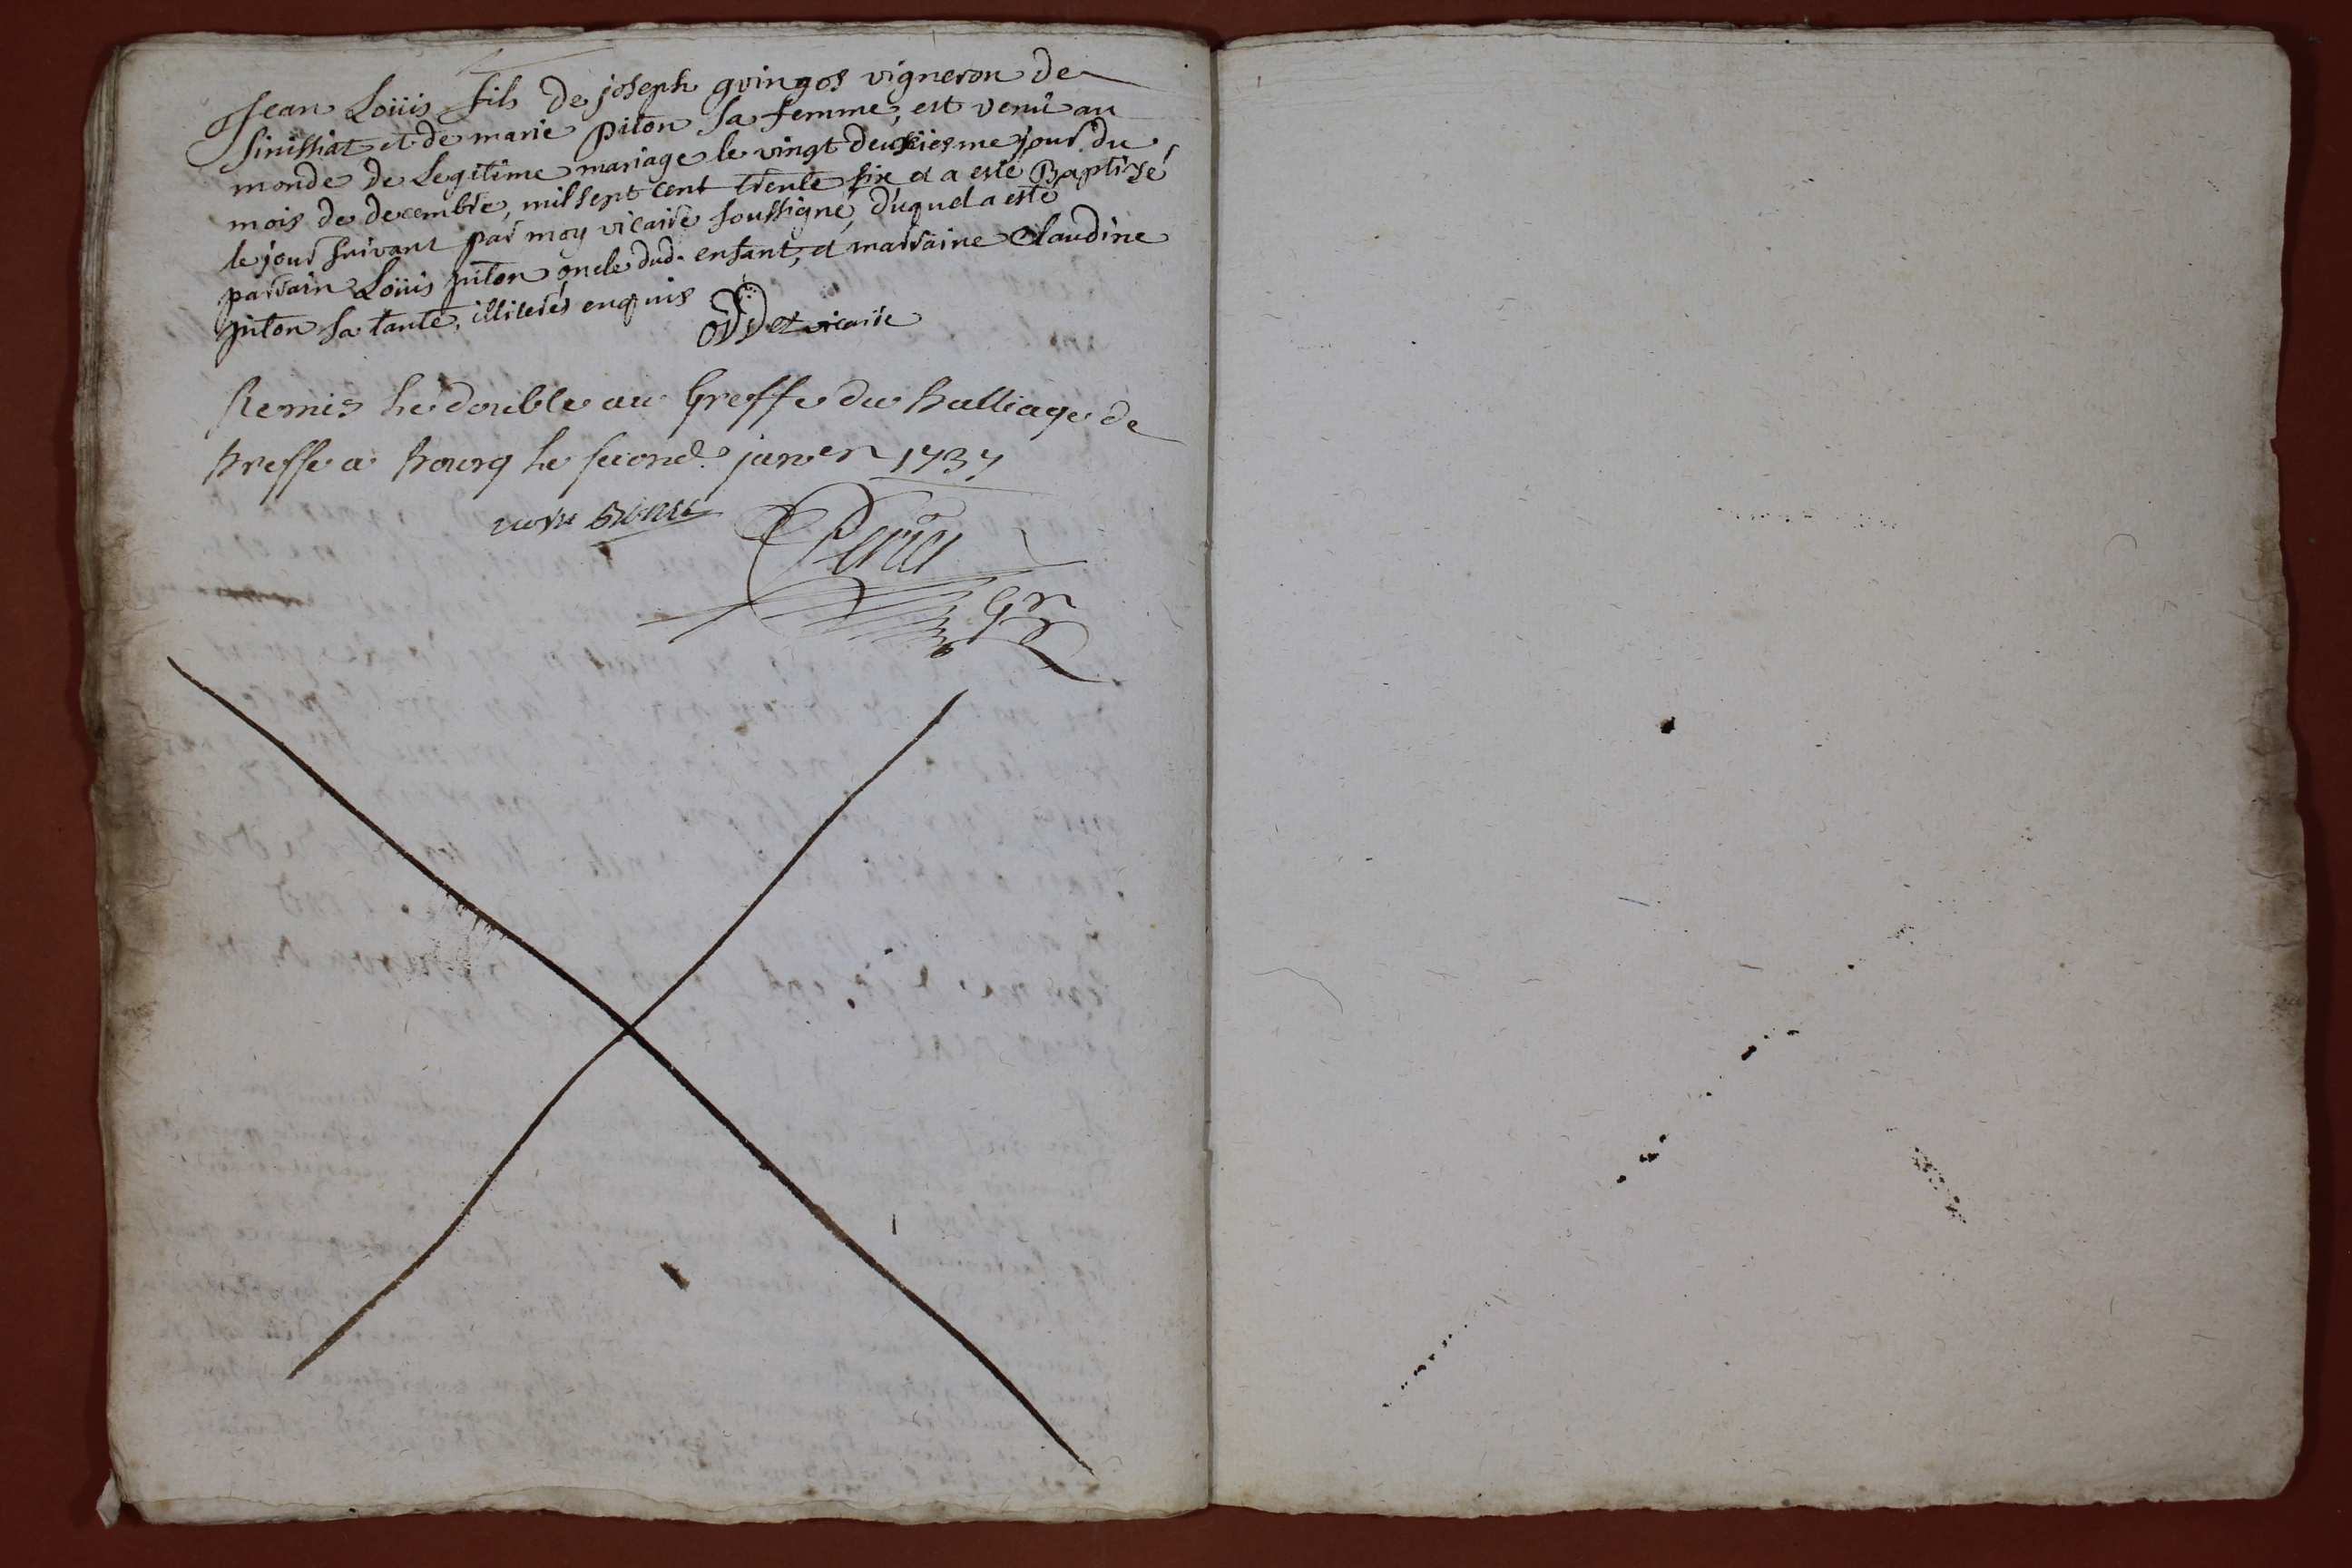 Jean Loüis fils de joseph gvingos vigneron de
Sinissiat et de marie piton sa femme, est venû au
monde de legitime mariage le vingt deuxiesme jour du
mois de decembre, mil sept cent trente six et a esté Baptizé
le jour suivant par moy vicaire soussigné, duquel a esté
parrain Loüis piton oncle dud. enfant, et marraine Claudine
piton sa tante, illiterés enquis
vicaire
Remis le double au Greffe du Balliage de
Bresse a Bourg le second janver 1737